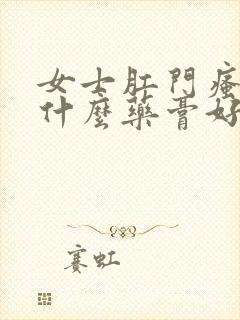 女士肛門瘙
什麼藥膏好
赛虹